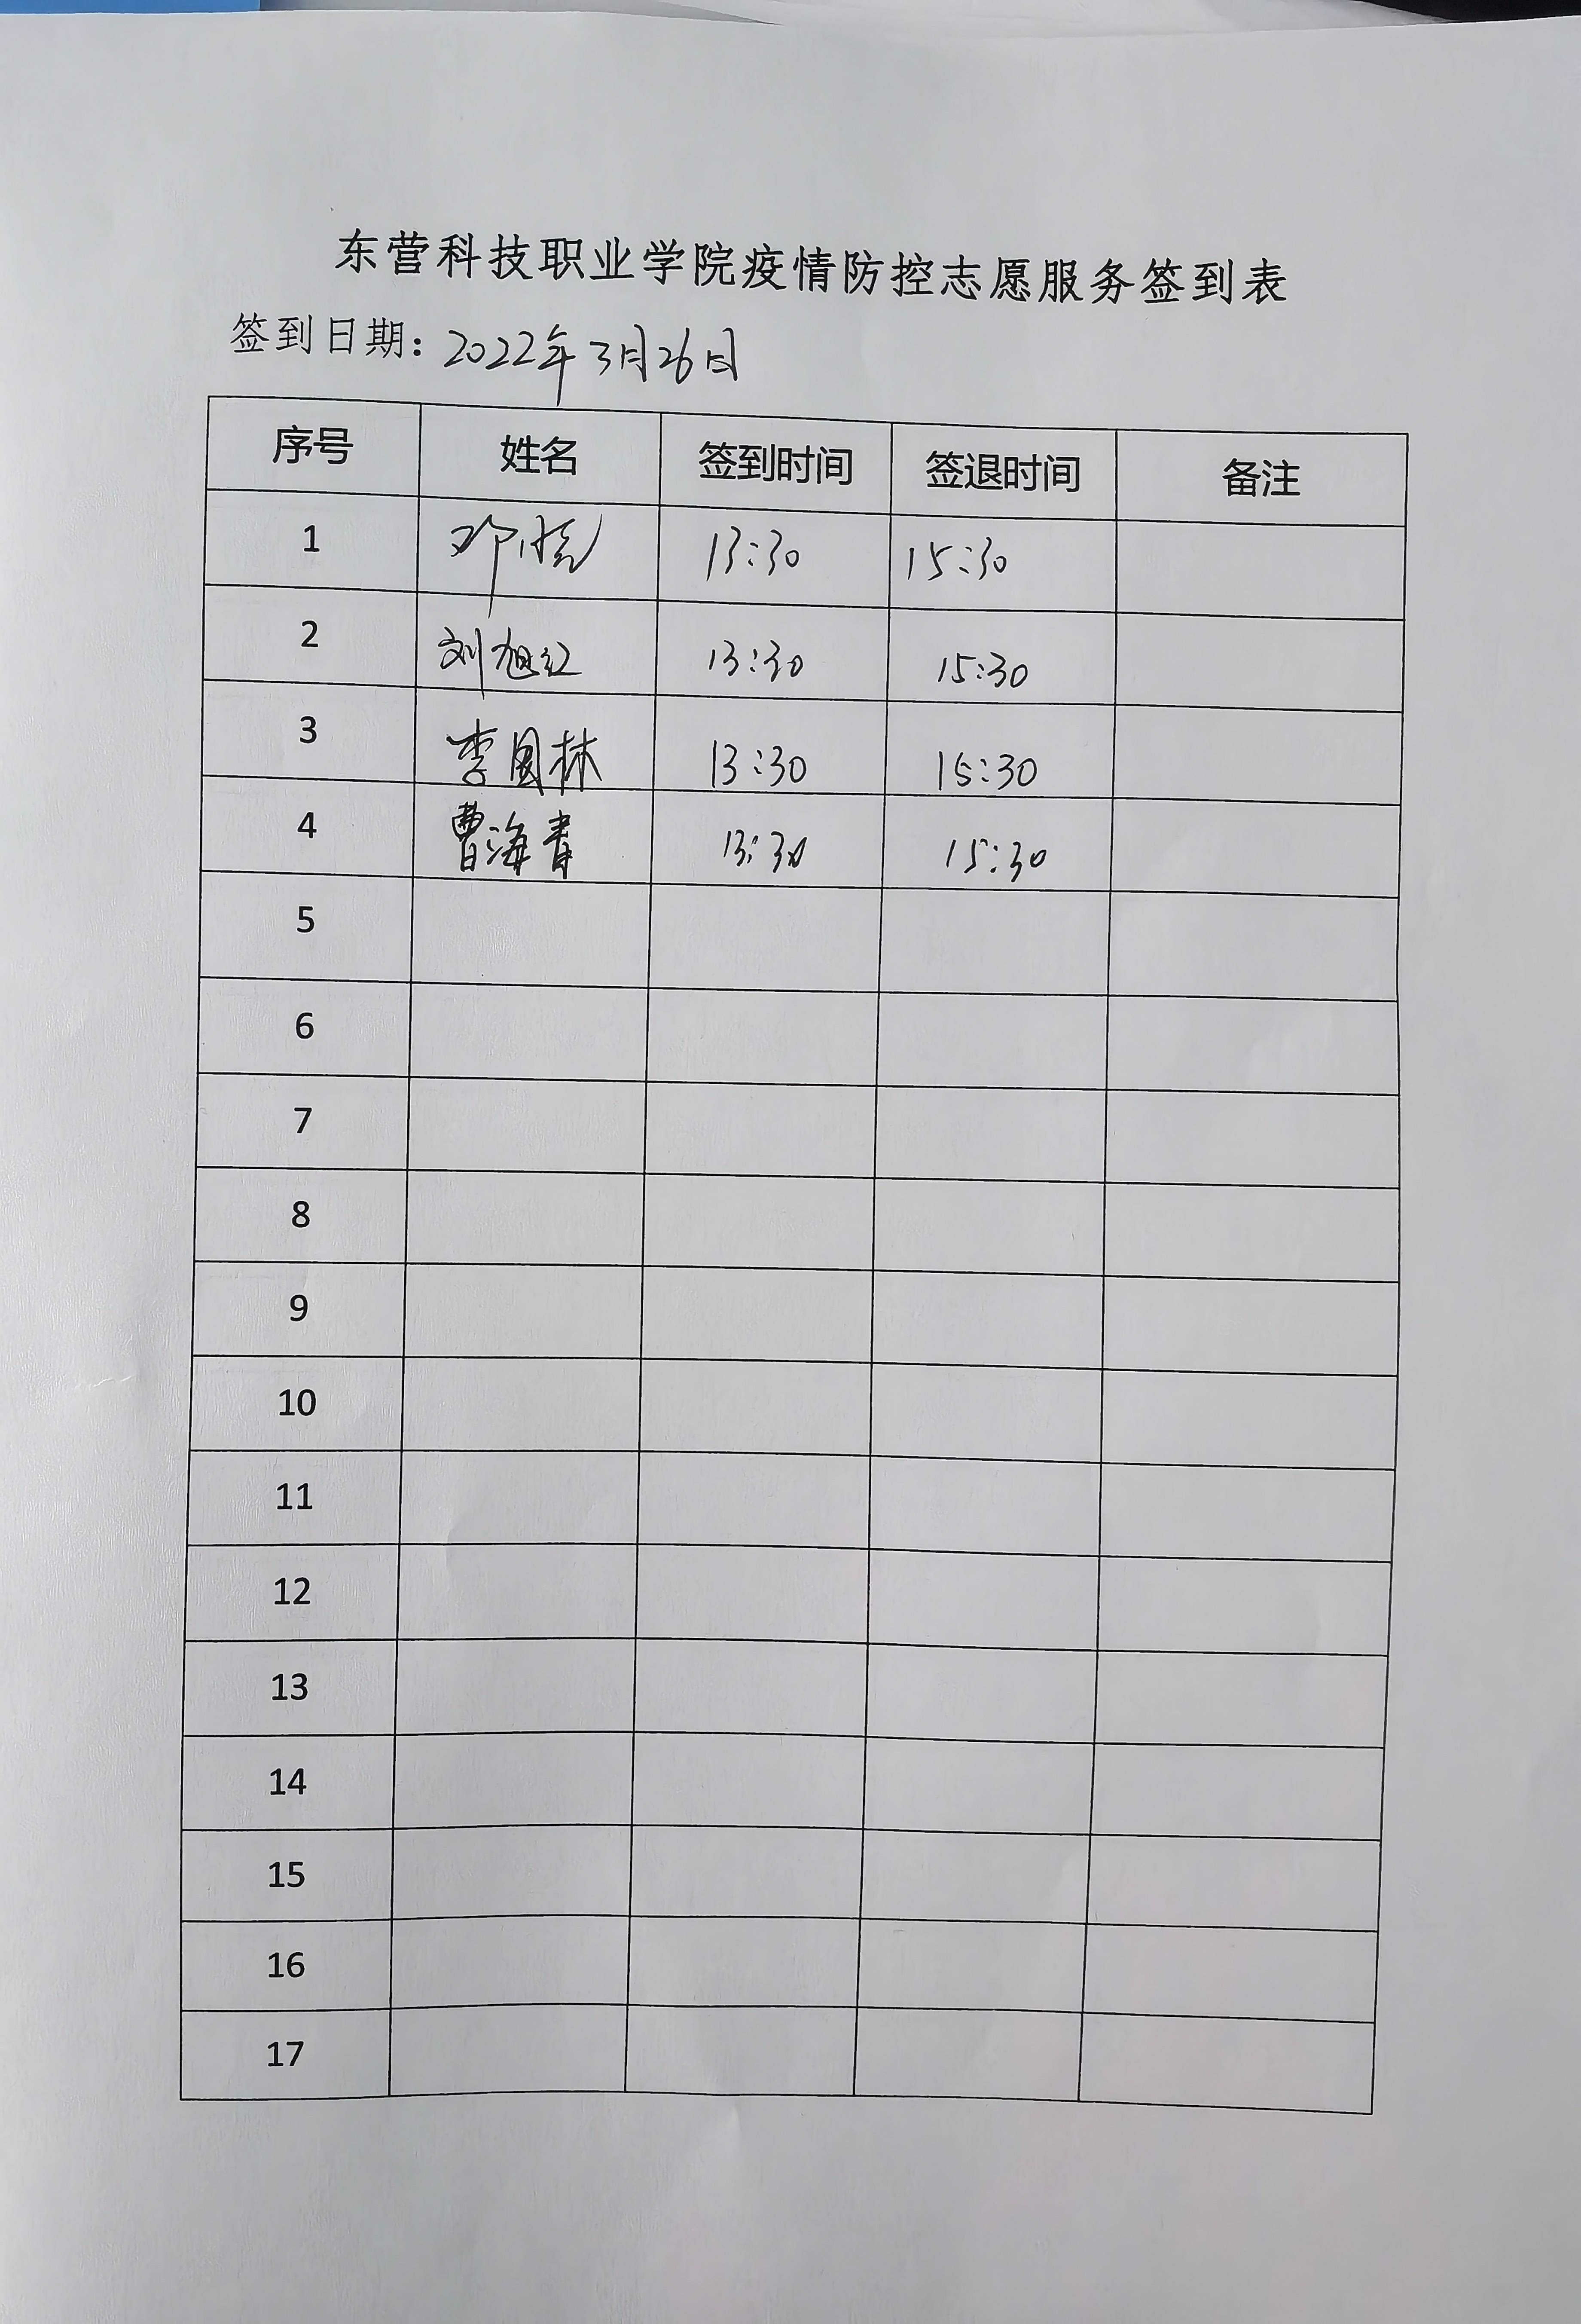 东营科技职业学院疫情防控志愿服务签到表
签到日期：2022年3月26日
序号 姓名 签到时间 签退时间 备注
1 邓晓 13:30 15:30
2 刘旭红 13:30 15:30
3 李国林 13:30 15:30
4 曹海青 13:30 15:30
5
6
7
8
9
10
11
12
13
14
15
16
17